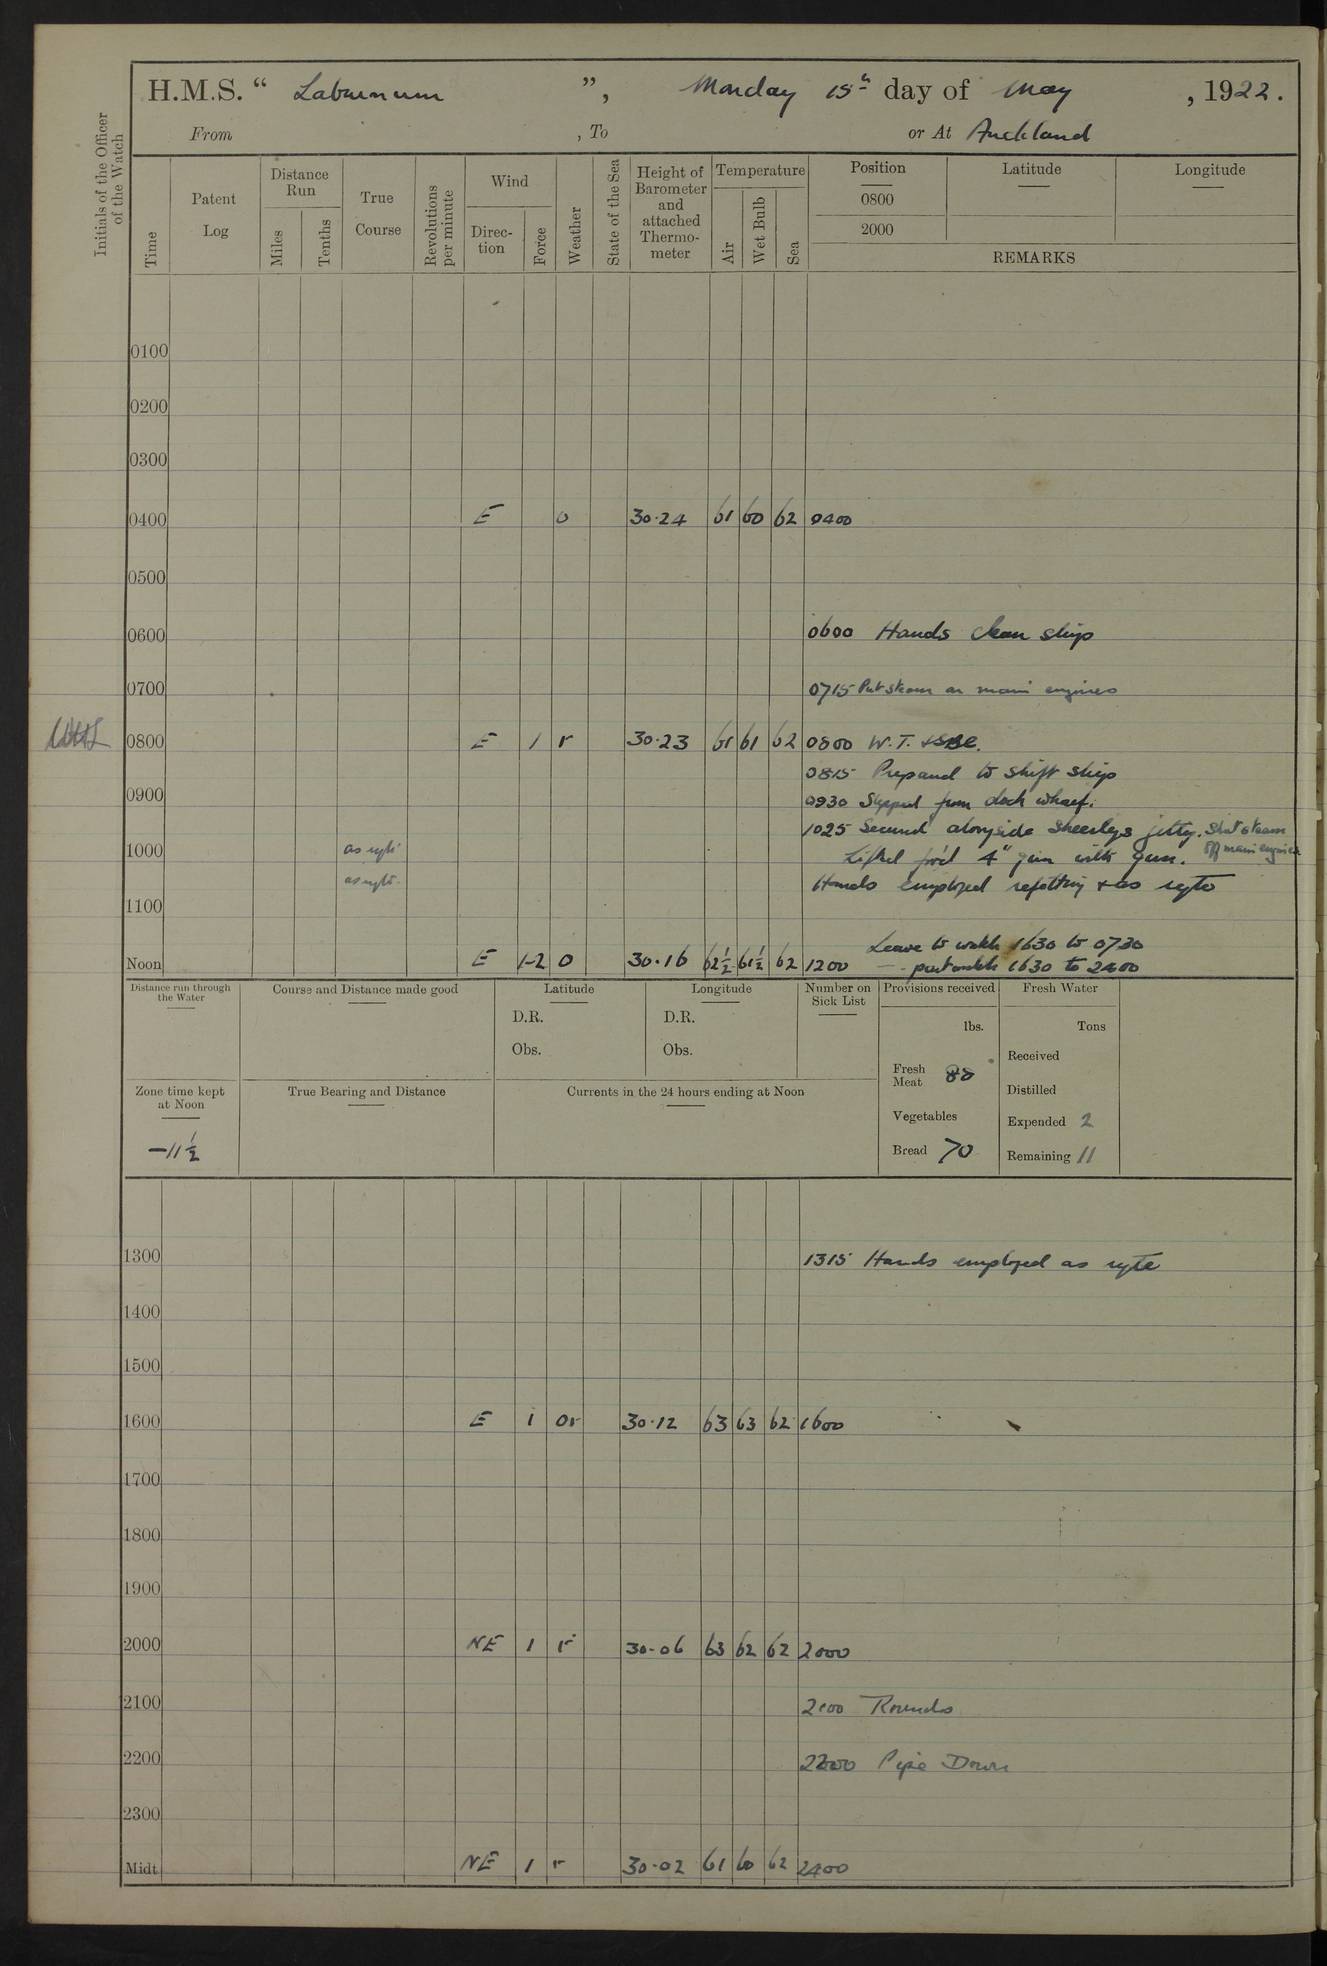 H.M.S. " Laburnum ", Monday 15th day of May, 1922.
From , To or At Auckland
Initials of the Officer of the Watch
Time
Patent Log
Distance Run
Miles
Tenths
True Course
Revolutions per minute
Wind
Direction
Force
Weather
State of the Sea
Height of Barometer and attached Thermometer
Temperature
Air
Wet Bulb
Sea
Position
0800
2000
Latitude
Longitude
REMARKS
0100
0200
0300
0400 E o 30·24 61 60 62 0400
0500
0600 0600 Hands clean ship
0700 0715 Put steam on main engines
0800 E 1 r 30·23 61 61 62 0800 W.T.
0815 Prepared to shift ship
0900 0930 Slipped from dock wharf.
1025 Secured alongside Sheerlegs jetty. Shut steam off main engines
1000 as reqte
Lifted for'd 4" gun with gun.
as reqte.
Hands employed refitting & as reqte
1100
Leave to watch 1630 to 0730
Noon E 1-2 o 30·16 62½ 61½ 62 1200 — part watch 1630 to 2400
Distance run through the Water
Course and Distance made good
Latitude
D.R.
Obs.
Longitude
D.R.
Obs.
Number on Sick List
Provisions received
lbs.
Fresh Meat 80
Vegetables
Bread 70
Fresh Water
Tons
Received
Distilled
Expended 2
Remaining 11
Zone time kept at Noon
-11½
True Bearing and Distance
Currents in the 24 hours ending at Noon
1300 1315 Hands employed as reqte
1400
1500
1600 E 1 or 30·12 63 63 62 1600
1700
1800
1900
2000 NE 1 r 30·06 63 62 62 2000
2100 2100 Rounds
2200 2200 Pipe Down
2300
Midt. NE 1 r 30·02 61 60 62 2400